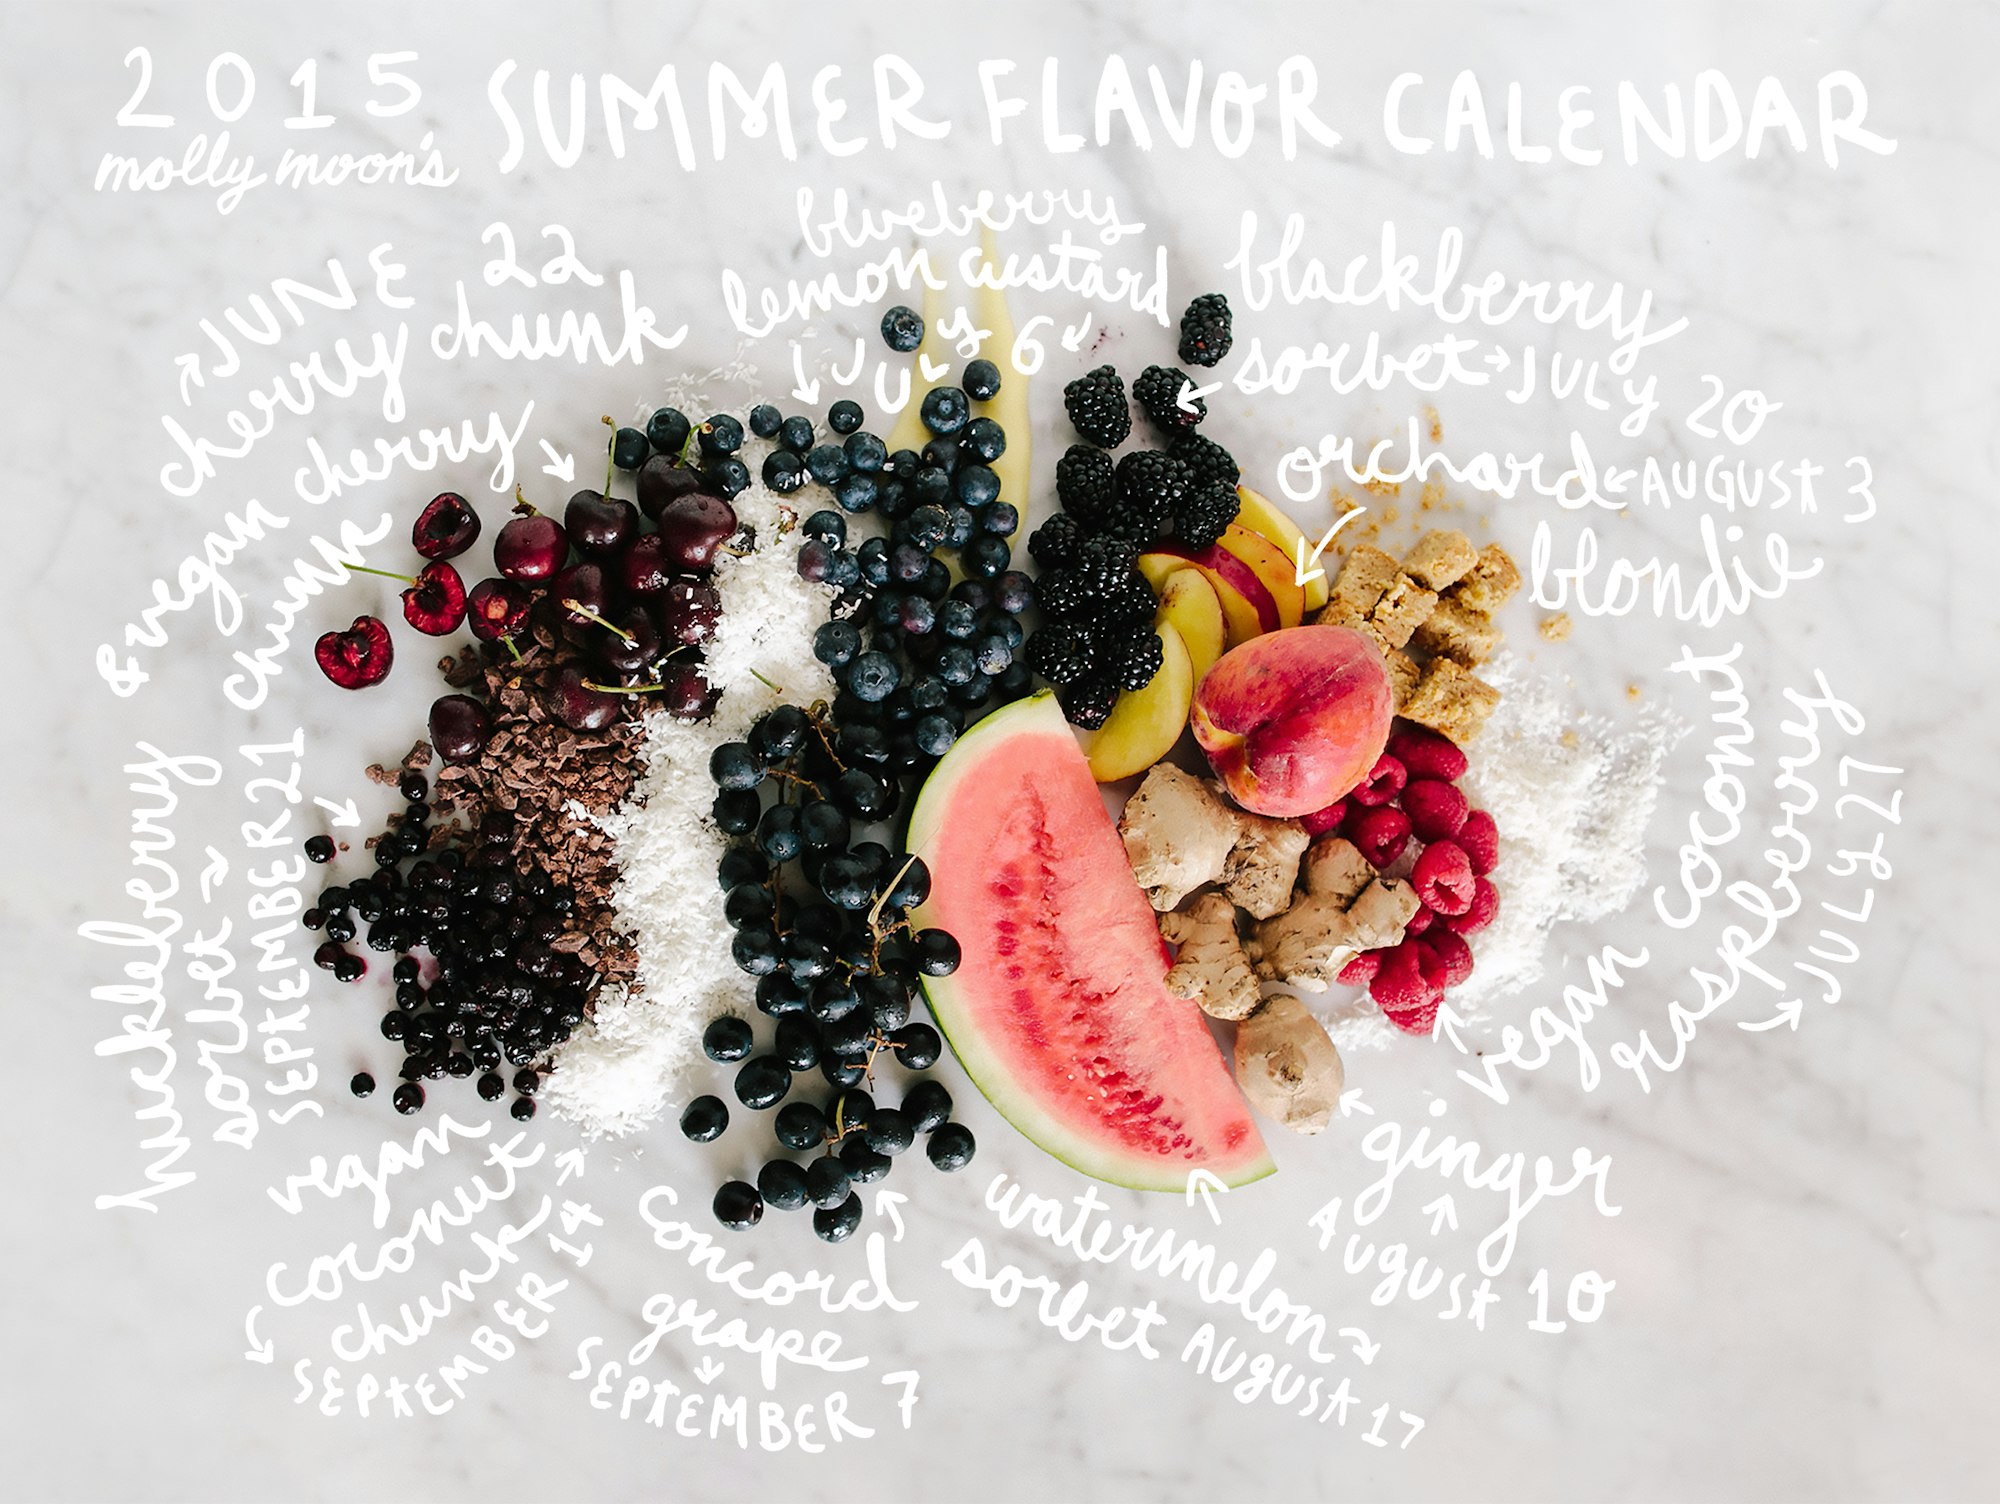 2015
molly moon's
SUMMER FLAVOR CALENDAR
JUNE 22
cherry chunk
& vegan cherry
chunk
blueberry
lemon custard
JULY 6
blackberry
sorbet JULY 20
orchard AUGUST 3
blondie
vegan coconut
raspberry
JULY 27
ginger
AUGUST 10
watermelon
sorbet AUGUST 17
concord
grape
SEPTEMBER 7
vegan
coconut
chunk
SEPTEMBER 14
huckleberry
sorbet
SEPTEMBER 21